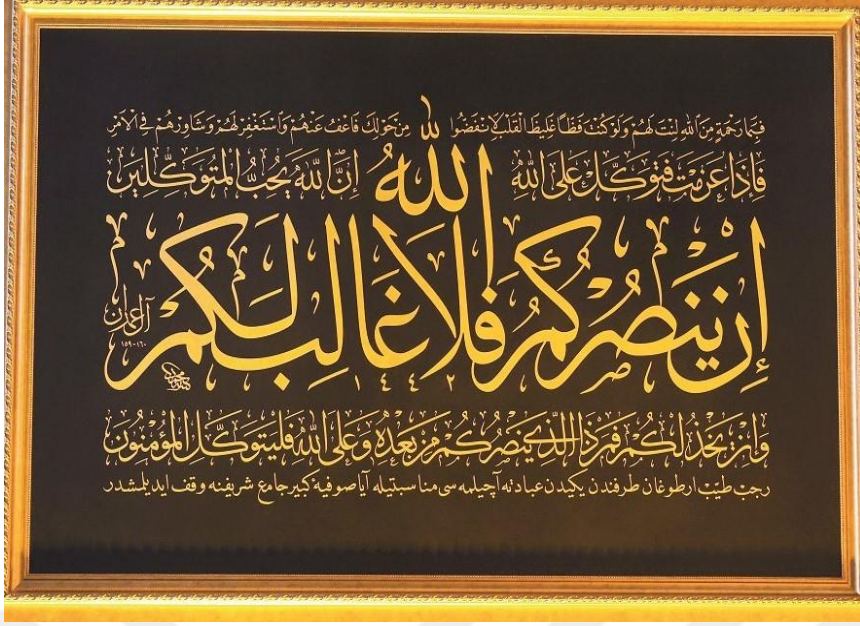 فَبِمَا رَحْمَةٍ مِنَ اللّٰهِ لِنْتَ لَهُمْ وَلَوْ كُنْتَ فَظًّا غَلِيظَ الْقَلْبِ لَانْفَضُّوا مِنْ حَوْلِكَ فَاعْفُ عَنْهُمْ وَاسْتَغْفِرْ لَهُمْ وَشَاوِرْهُمْ فِي الْاَمْرِ
فَاِذَا عَزَمْتَ فَتَوَكَّلْ عَلَى اللّٰهِ اِنَّ اللّٰهَ يُحِبُّ الْمُتَوَكِّلِينَ
اِنْ يَنْصُرْكُمُ اللّٰهُ فَلَا غَالِبَ لَكُمْ
آل عمران
١٥٩-١٦٠
١٤٤٢
وَاِنْ يَخْذُلْكُمْ فَمَنْ ذَا الَّذِي يَنْصُرُكُمْ مِنْ بَعْدِهِ وَعَلَى اللّٰهِ فَلْيَتَوَكَّلِ الْمُؤْمِنُونَ
رجب طيّب ارطوغان طرفندن يكيدن عبادته آچيلمه سى مناسبتيله آيا صوفيۀ كبير جامع شريفنه وقف ايديلمشدر